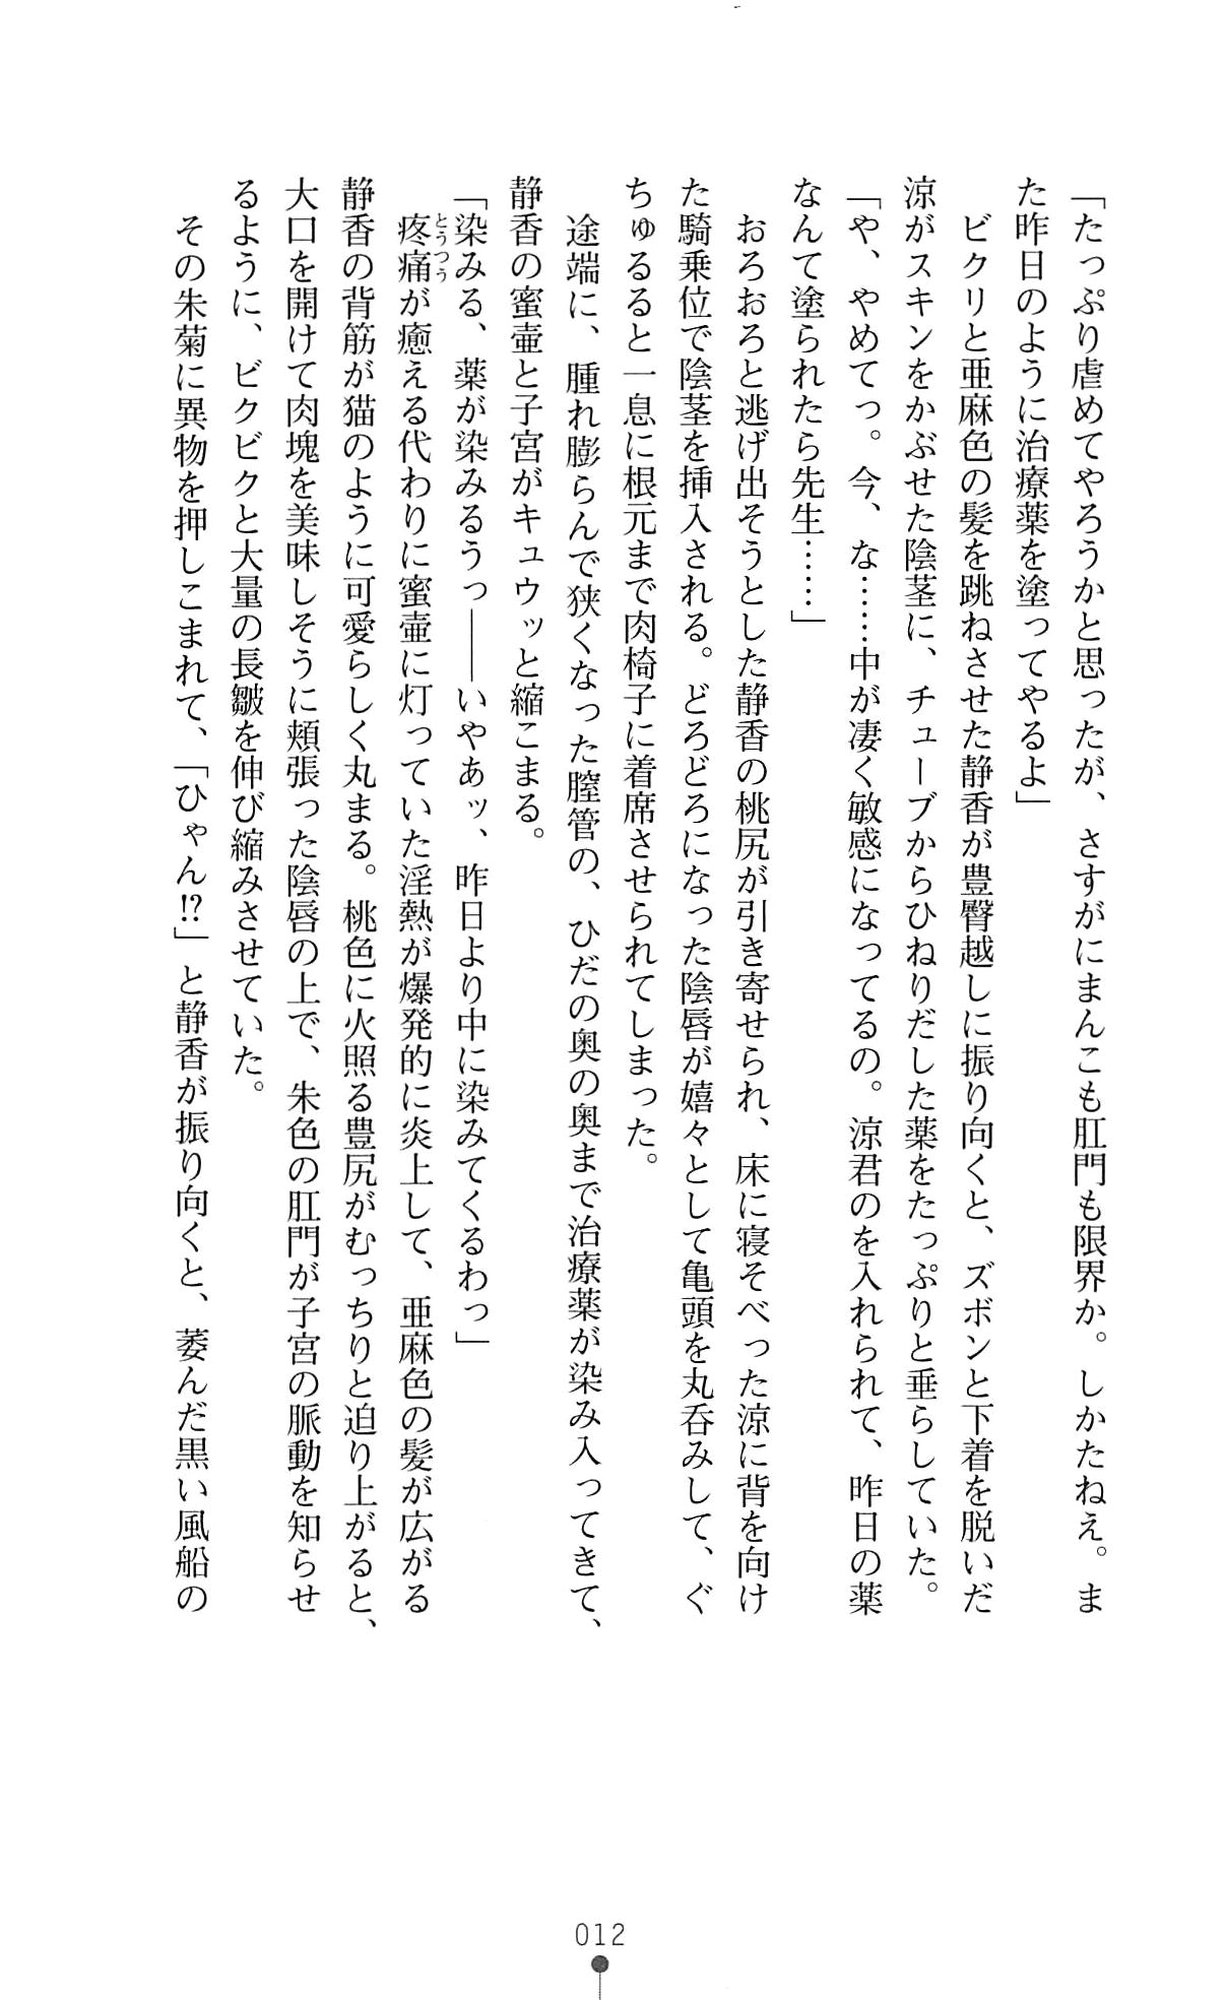 「たっぷり虐めてやろうかと思ったが、さすがにまんこも肛門も限界か。しかたねえ。ま
た昨日のように治療薬を塗ってやるよ」
ビクリと亜麻色の髪を跳ねさせた静香が豊臀越しに振り向くと、ズボンと下着を脱いだ
涼がスキンをかぶせた陰茎に、チューブからひねりだした薬をたっぷりと垂らしていた。
「や、やめてっ。今、な……中が凄く敏感になってるの。涼君のを入れられて、昨日の薬
なんて塗られたら先生……」
おろおろと逃げ出そうとした静香の桃尻が引き寄せられ、床に寝そべった涼に背を向け
た騎乗位で陰茎を挿入される。どろどろになった陰唇が嬉々として亀頭を丸呑みして、ぐ
ちゅるると一息に根元まで肉椅子に着席させられてしまった。
途端に、腫れ膨らんで狭くなった膣管の、ひだの奥の奥まで治療薬が染み入ってきて、
静香の蜜壷と子宮がキュウッと縮こまる。
「染みる、薬が染みるうっ――いやあッ、昨日より中に染みてくるわっ」
疼痛が癒える代わりに蜜壷に灯っていた淫熱が爆発的に炎上して、亜麻色の髪が広がる
とうつう
静香の背筋が猫のように可愛らしく丸まる。桃色に火照る豊尻がむっちりと迫り上がると、
大口を開けて肉塊を美味しそうに頬張った陰唇の上で、朱色の肛門が子宮の脈動を知らせ
るように、ビクビクと大量の長皺を伸び縮みさせていた。
その朱菊に異物を押しこまれて、「ひゃん!?」と静香が振り向くと、萎んだ黒い風船の
012